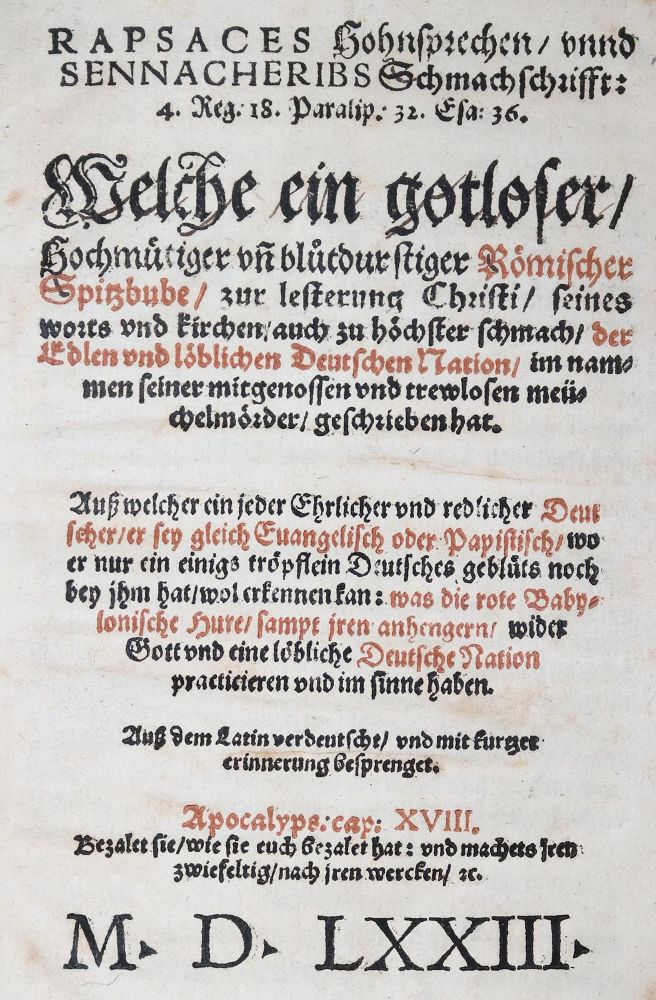 RAPSACES Hohnsprechen/ vnnd
SENNACHERIBS Schmachschrifft:
4. Reg: 18. Paralip: 32. Esa: 36.
Welche ein gotloser/
Hochmütiger vñ blůtdurstiger Römischer
Spitzbube/ zur lesterung Christi/ seines
worts vnd kirchen/auch zu höchster schmach/ der
Edlen vnd löblichen Deutschen Nation/ im nam-
men seiner mitgenossen vnd trewlosen meü-
chelmörder/ geschrieben hat.
Auß welcher ein jeder Ehrlicher vnd redlicher Deut
scher/er sey gleich Euangelisch oder Papistisch/wo
er nur ein einigs tröpflein Deutsches geblüts noch
bey jhm hat/wol erkennen kan: was die rote Baby-
lonische Hure/ sampt jren anhengern/ wider
Gott vnd eine löbliche Deutsche Nation
practicieren vnd im sinne haben.
Auß dem Latin verdeutscht/ vnd mit kurtzer
erinnerung besprenget.
Apocalyps: cap: XVIII.
Bezalet sie/wie sie euch bezalet hat: vnd machets jren
zwiefeltig/nach jren wercken/ ꝛc.
M. D. LXXIII.